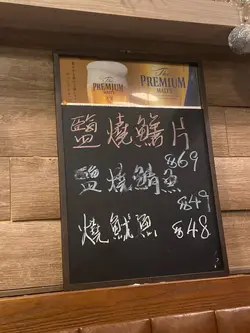 The
PREMIUM
MALT'S
The
PREMIUM
MALT'S
鹽燒鱈片
$69
鹽燒鯖魚
$49
燒魷魚 $48